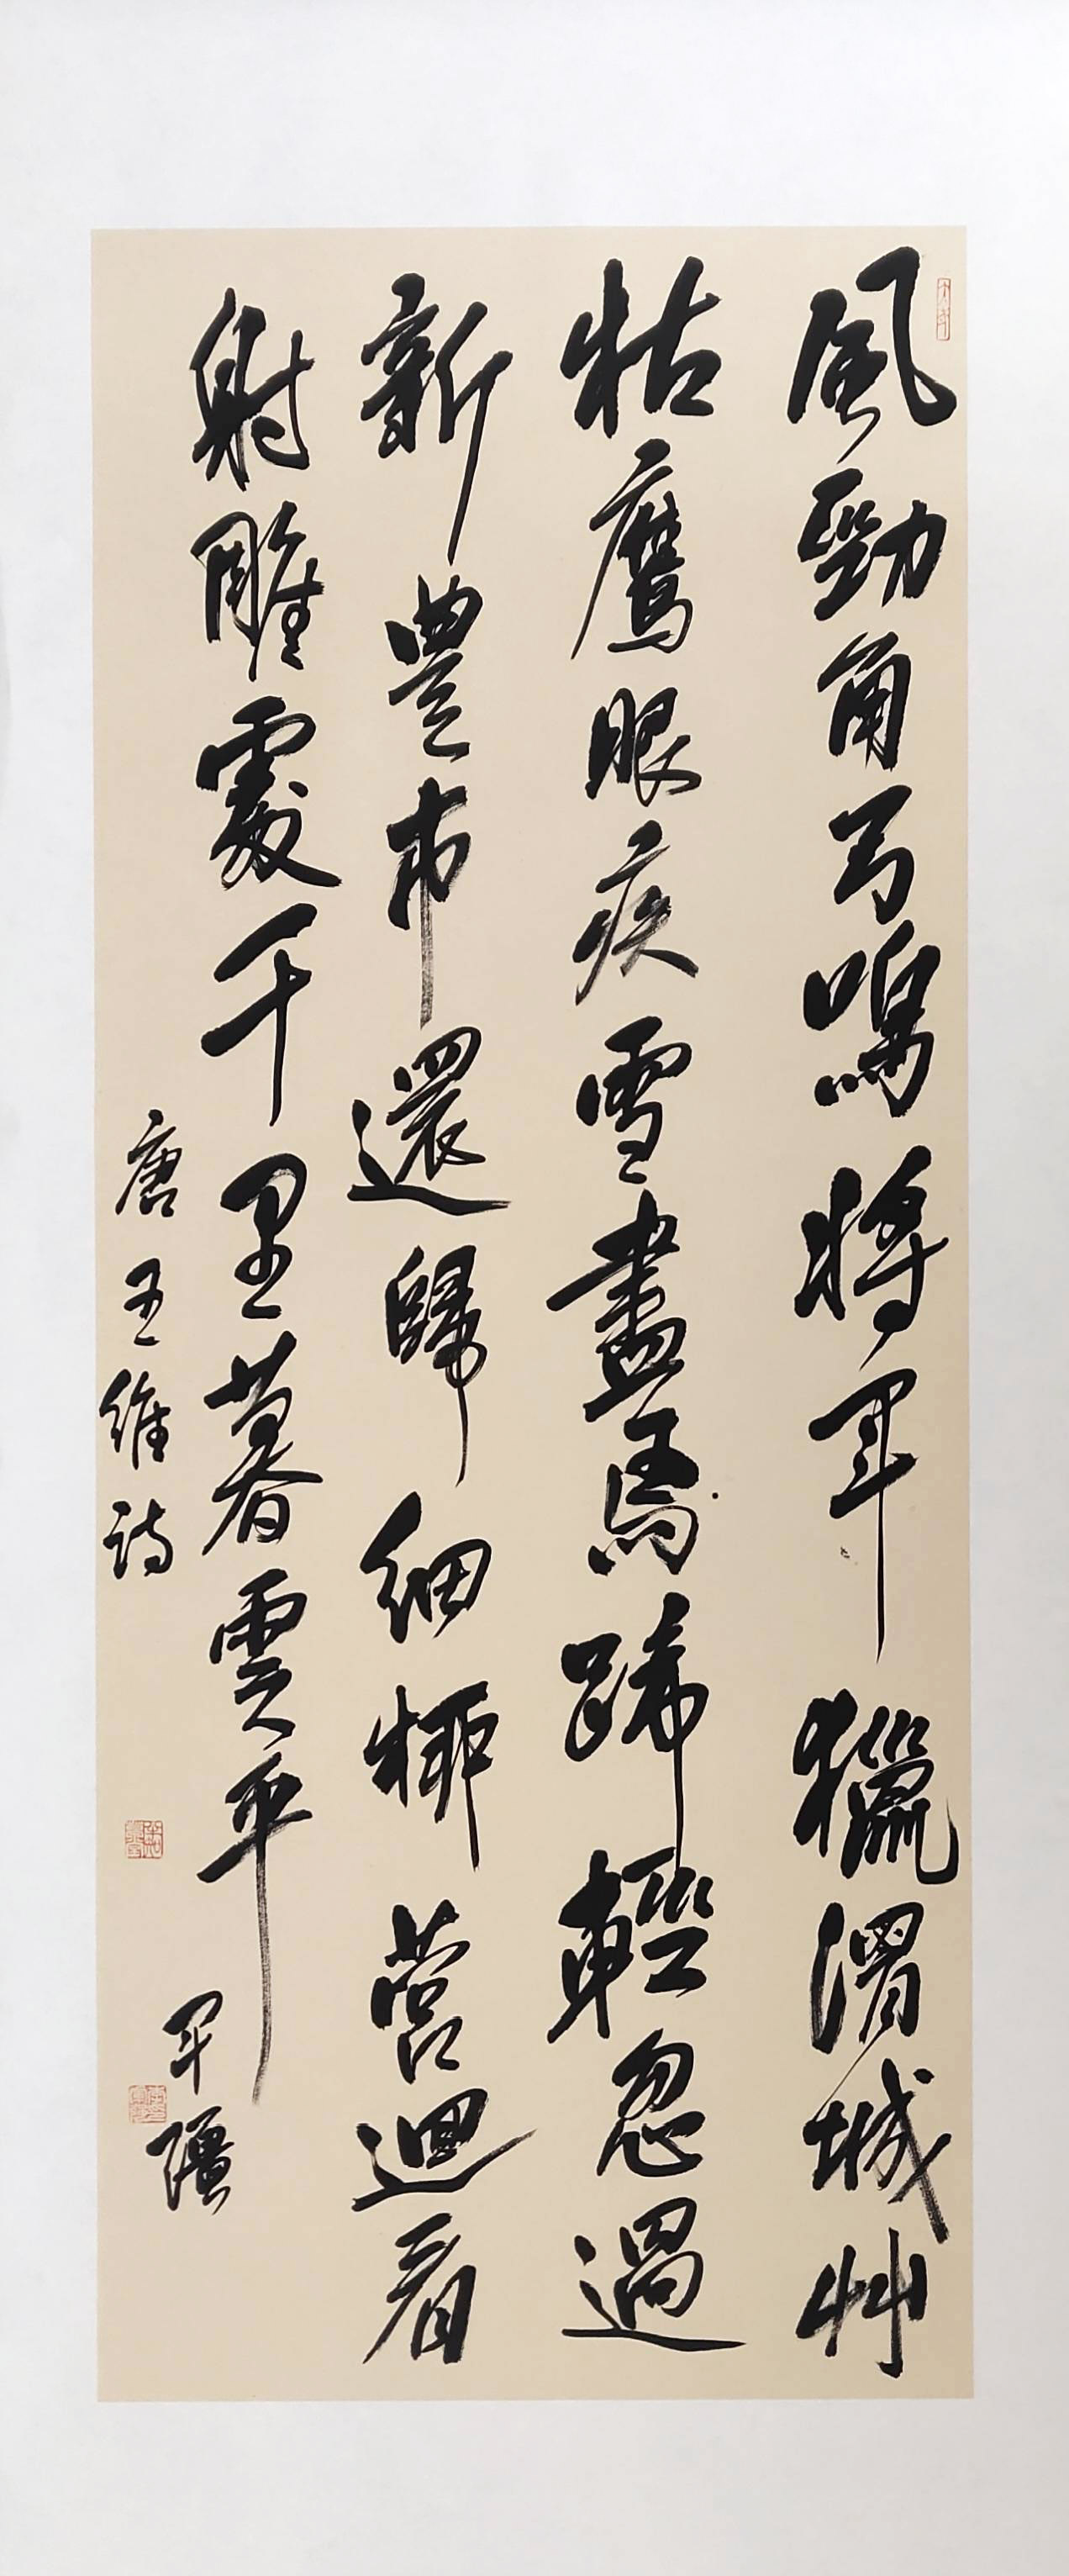 風勁角弓鳴將軍獵渭城艸
枯鷹眼疾雪盡馬蹄輕忽過
新豐市還歸細柳營迴看
射雕處千里暮雲平
唐王維詩
軍疆